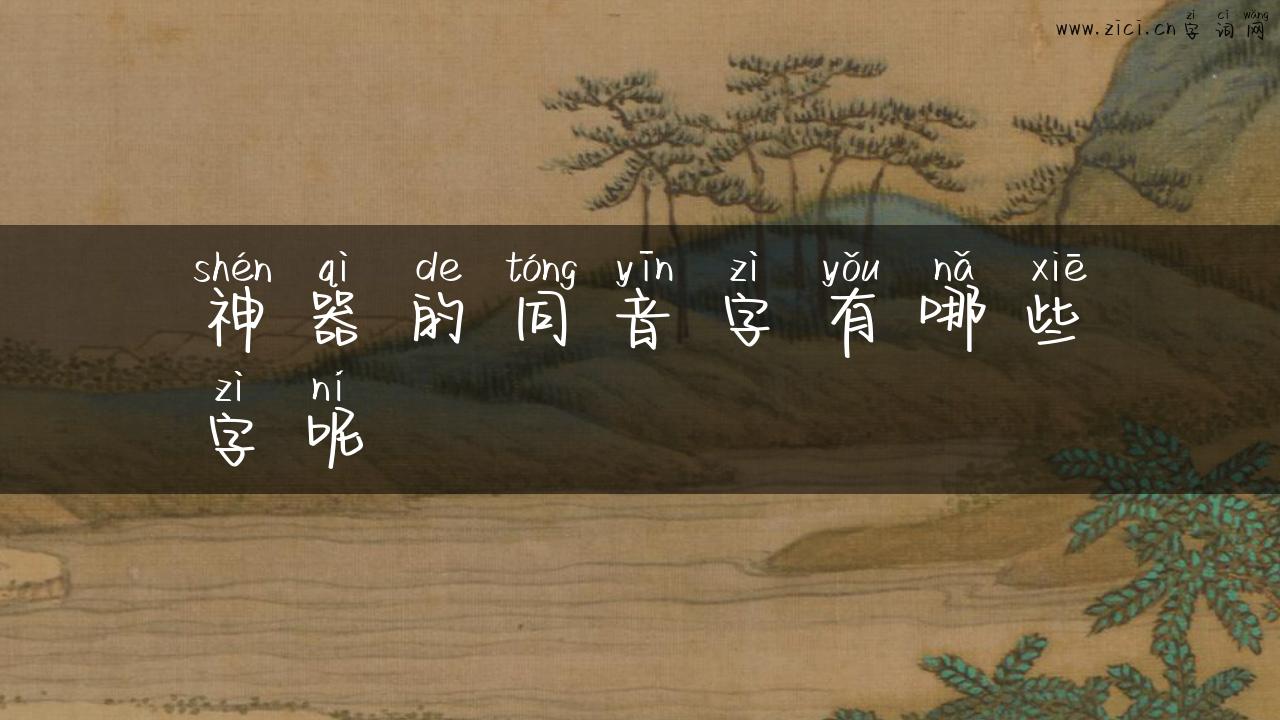 zì cí wǎng
www.zici.cn 字 词 网
shén qì de tóng yīn zì yǒu nǎ xiē
神 器 的 同 音 字 有 哪 些
zì ní
字 呢